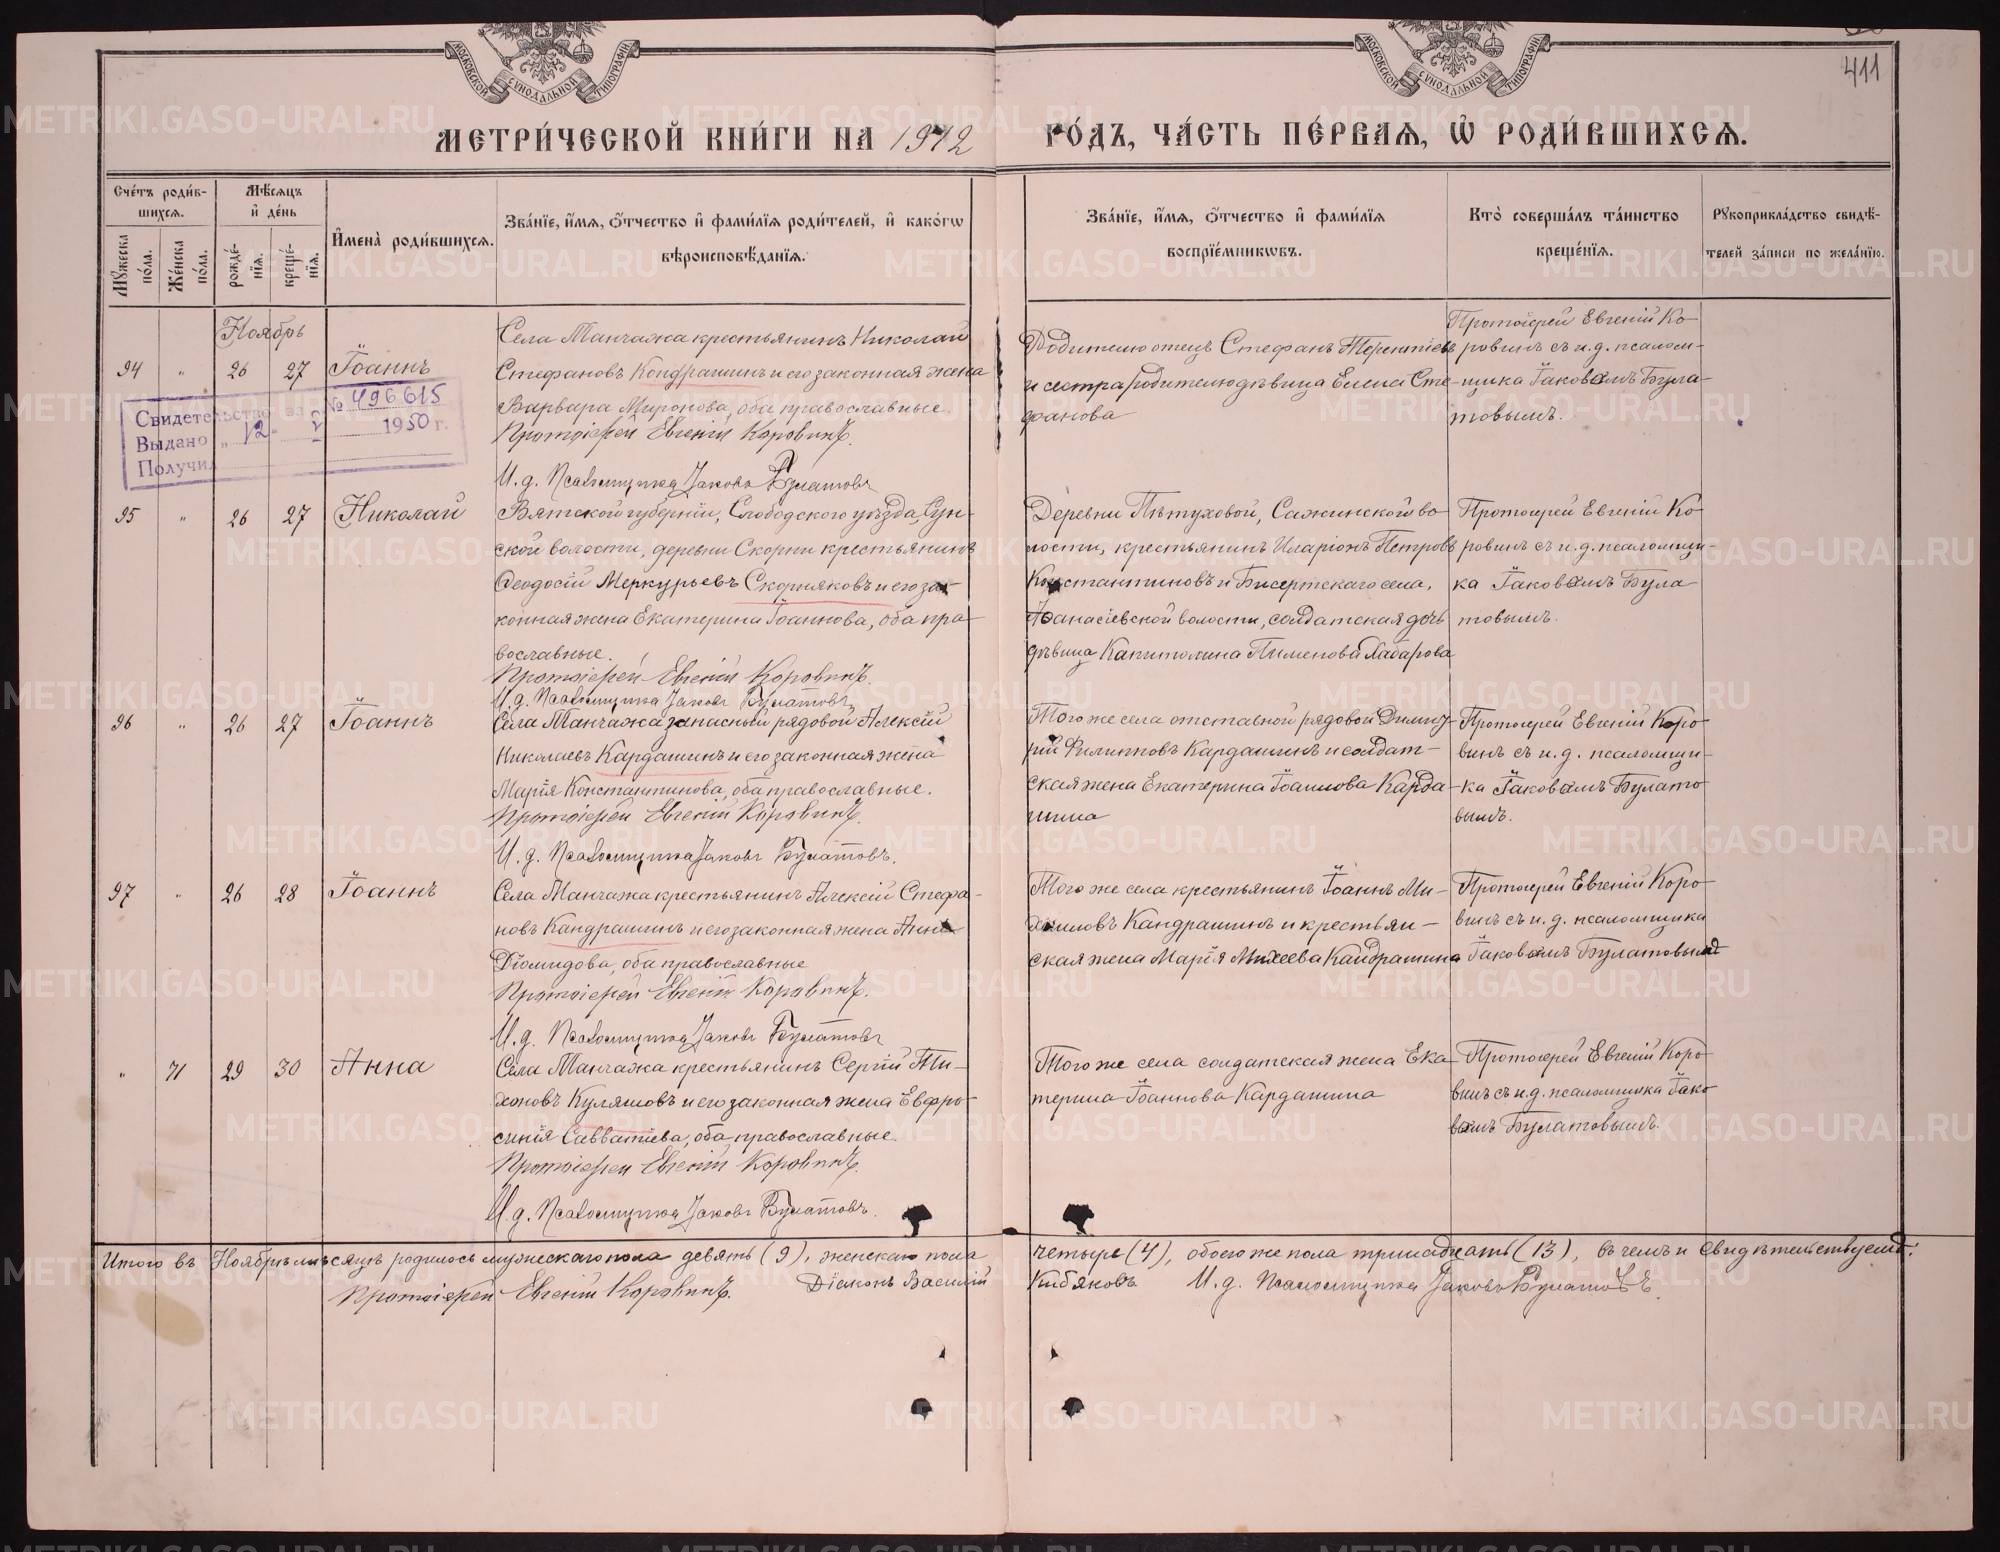 МОСКОВСКОЙ СѴНОДАЛЬНОЙ ТИПОГРАФІИ
МОСКОВСКОЙ СѴНОДАЛЬНОЙ ТИПОГРАФІИ
411
МЕТРИ́ЧЕСКОЙ КНИ́ГИ НА 1912 ГО́ДЪ, ЧА́СТЬ ПЕ́РВАЯ, Ѡ РОДИ́ВШИХСЯ.
Сче́тъ роди́в-
шихся.
Мꙋжеска по́ла.
Же́нска по́ла.
Мѣ́сяцъ
и҆ де́нь
рожде́-
нїя.
креще́-
нїя.
И҆мена̀ роди́вшихся.
Зва́нїе, и҆́мя, о҆́тчество и҆ фами́лїя роди́телей, и҆ како́гѡ
вѣроисповѣ́данїя.
Зва́нїе, и҆́мя, о҆́тчество и҆ фами́лїя
воспрїе́мникѡвъ.
Кто̀ соверша́лъ та́инство
креще́нїя.
Рꙋкоприкла́дство свидѣ́-
телей за́писи по жела́нїю.
Ноябрь
94 " 26 27 Іоаннъ
Села Манчажа крестьянинъ Николай
Стефановъ Кондрашинъ и его законная жена
Варвара Миронова, оба православные.
Протоіерей Евгеній Коровинъ.
И. д. Псаломщика Іаковъ Булатовъ
Родителю отецъ Стефанъ Терентіевъ
и сестра родителю дѣвица Елена Сте-
фанова
Протоіерей Евгеній Ко-
ровинъ съ и. д. псалом-
щика Іаковомъ Була-
товымъ.
Свидетельство за № 496615
Выдано „12" V 1950 г.
Получил
95 " 26 27 Николай
Вятской губерніи, Слободского уѣзда, Сун-
ской волости, деревни Скорни крестьянинъ
Феодосій Меркурьевъ Скорняковъ и его за-
конная жена Екатерина Іоаннова, оба пра-
вославные.
Протоіерей Евгеній Коровинъ.
И. д. Псаломщика Іаковъ Булатовъ
Деревни Пѣтуховой, Сажинской во-
лости, крестьянинъ Иларіонъ Петровъ
Константиновъ и Бисертскаго села,
Афанасіевской волости, солдатская дочь
дѣвица Капитолина Пименова Хабарова
Протоіерей Евгеній Ко-
ровинъ съ и. д. псаломщи-
ка Іаковомъ Була
товымъ.
96 " 26 27 Іоаннъ
Села Манчажа запасный рядовой Алексій
Николаевъ Кардашинъ и его законная жена
Марія Константинова, оба православные.
Протоіерей Евгеній Коровинъ.
И. д. Псаломщика Іаковъ Булатовъ.
Того же села отставной рядовой Димит-
рій Филипповъ Кардашинъ и солдат-
ская жена Екатерина Іоаннова Карда-
шина
Протоіерей Евгеній Коро-
винъ съ и. д. псаломщи-
ка Іаковомъ Булато
вымъ.
97 " 26 28 Іоаннъ
Села Манчажа крестьянинъ Алексій Стефа-
новъ Кандрашинъ и его законная жена Анна
Діомидова, оба православные
Протоіерей Евгеній Коровинъ.
И. д. Псаломщика Іаковъ Булатовъ
Того же села крестьянинъ Іоаннъ Ми-
хаиловъ Кандрашинъ и крестьян-
ская жена Марія Михеева Кандрашина
Протоіерей Евгеній Коро-
винъ съ и. д. псаломщика
Іаковомъ Булатовымъ
" 71 29 30 Анна
Села Манчажа крестьянинъ Сергій Ти-
хоновъ Куляшовъ и его законная жена Евфро-
синія Савватіева, оба православные.
Протоіерей Евгеній Коровинъ.
И. д. Псаломщика Іаковъ Булатовъ.
Того же села солдатская жена Ека-
терина Іоаннова Кардашина
Протоіерей Евгеній Коро-
винъ съ и. д. псаломщика Іако
вомъ Булатовымъ.
Итого въ Ноябрѣ мѣсяцѣ родилось мужескаго пола девять (9), женскаго пола четыре (4), обоего же пола тринадцать (13), въ чемъ и свидѣтельствуемъ:
Протоіерей Евгеній Коровинъ. Діаконъ Василій Кибяковъ И. д. Псаломщика Іаковъ Булатовъ.
METRIKI.GASO-URAL.RU